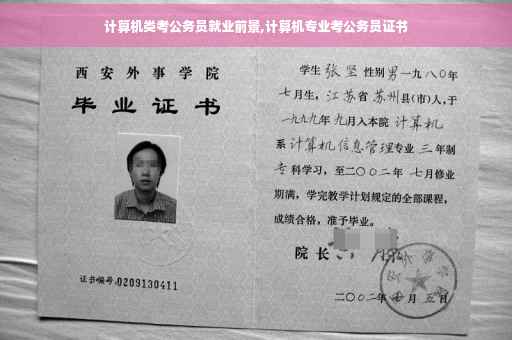 计算机类考公务员就业前景,计算机专业考公务员证书
西安外事学院
毕业证书
证书编号:0209130411
学生 张坚 性别 男 一九八〇年
七月生,江苏省 苏州县(市)人,于
一九九九年 九月入本院 计算机
系 计算机信息管理专业 三 年制
专 科学习,至二〇〇二年 七月修业
期满,学完教学计划规定的全部课程,
成绩合格,准予毕业。
院长
二〇〇二年 月 五日